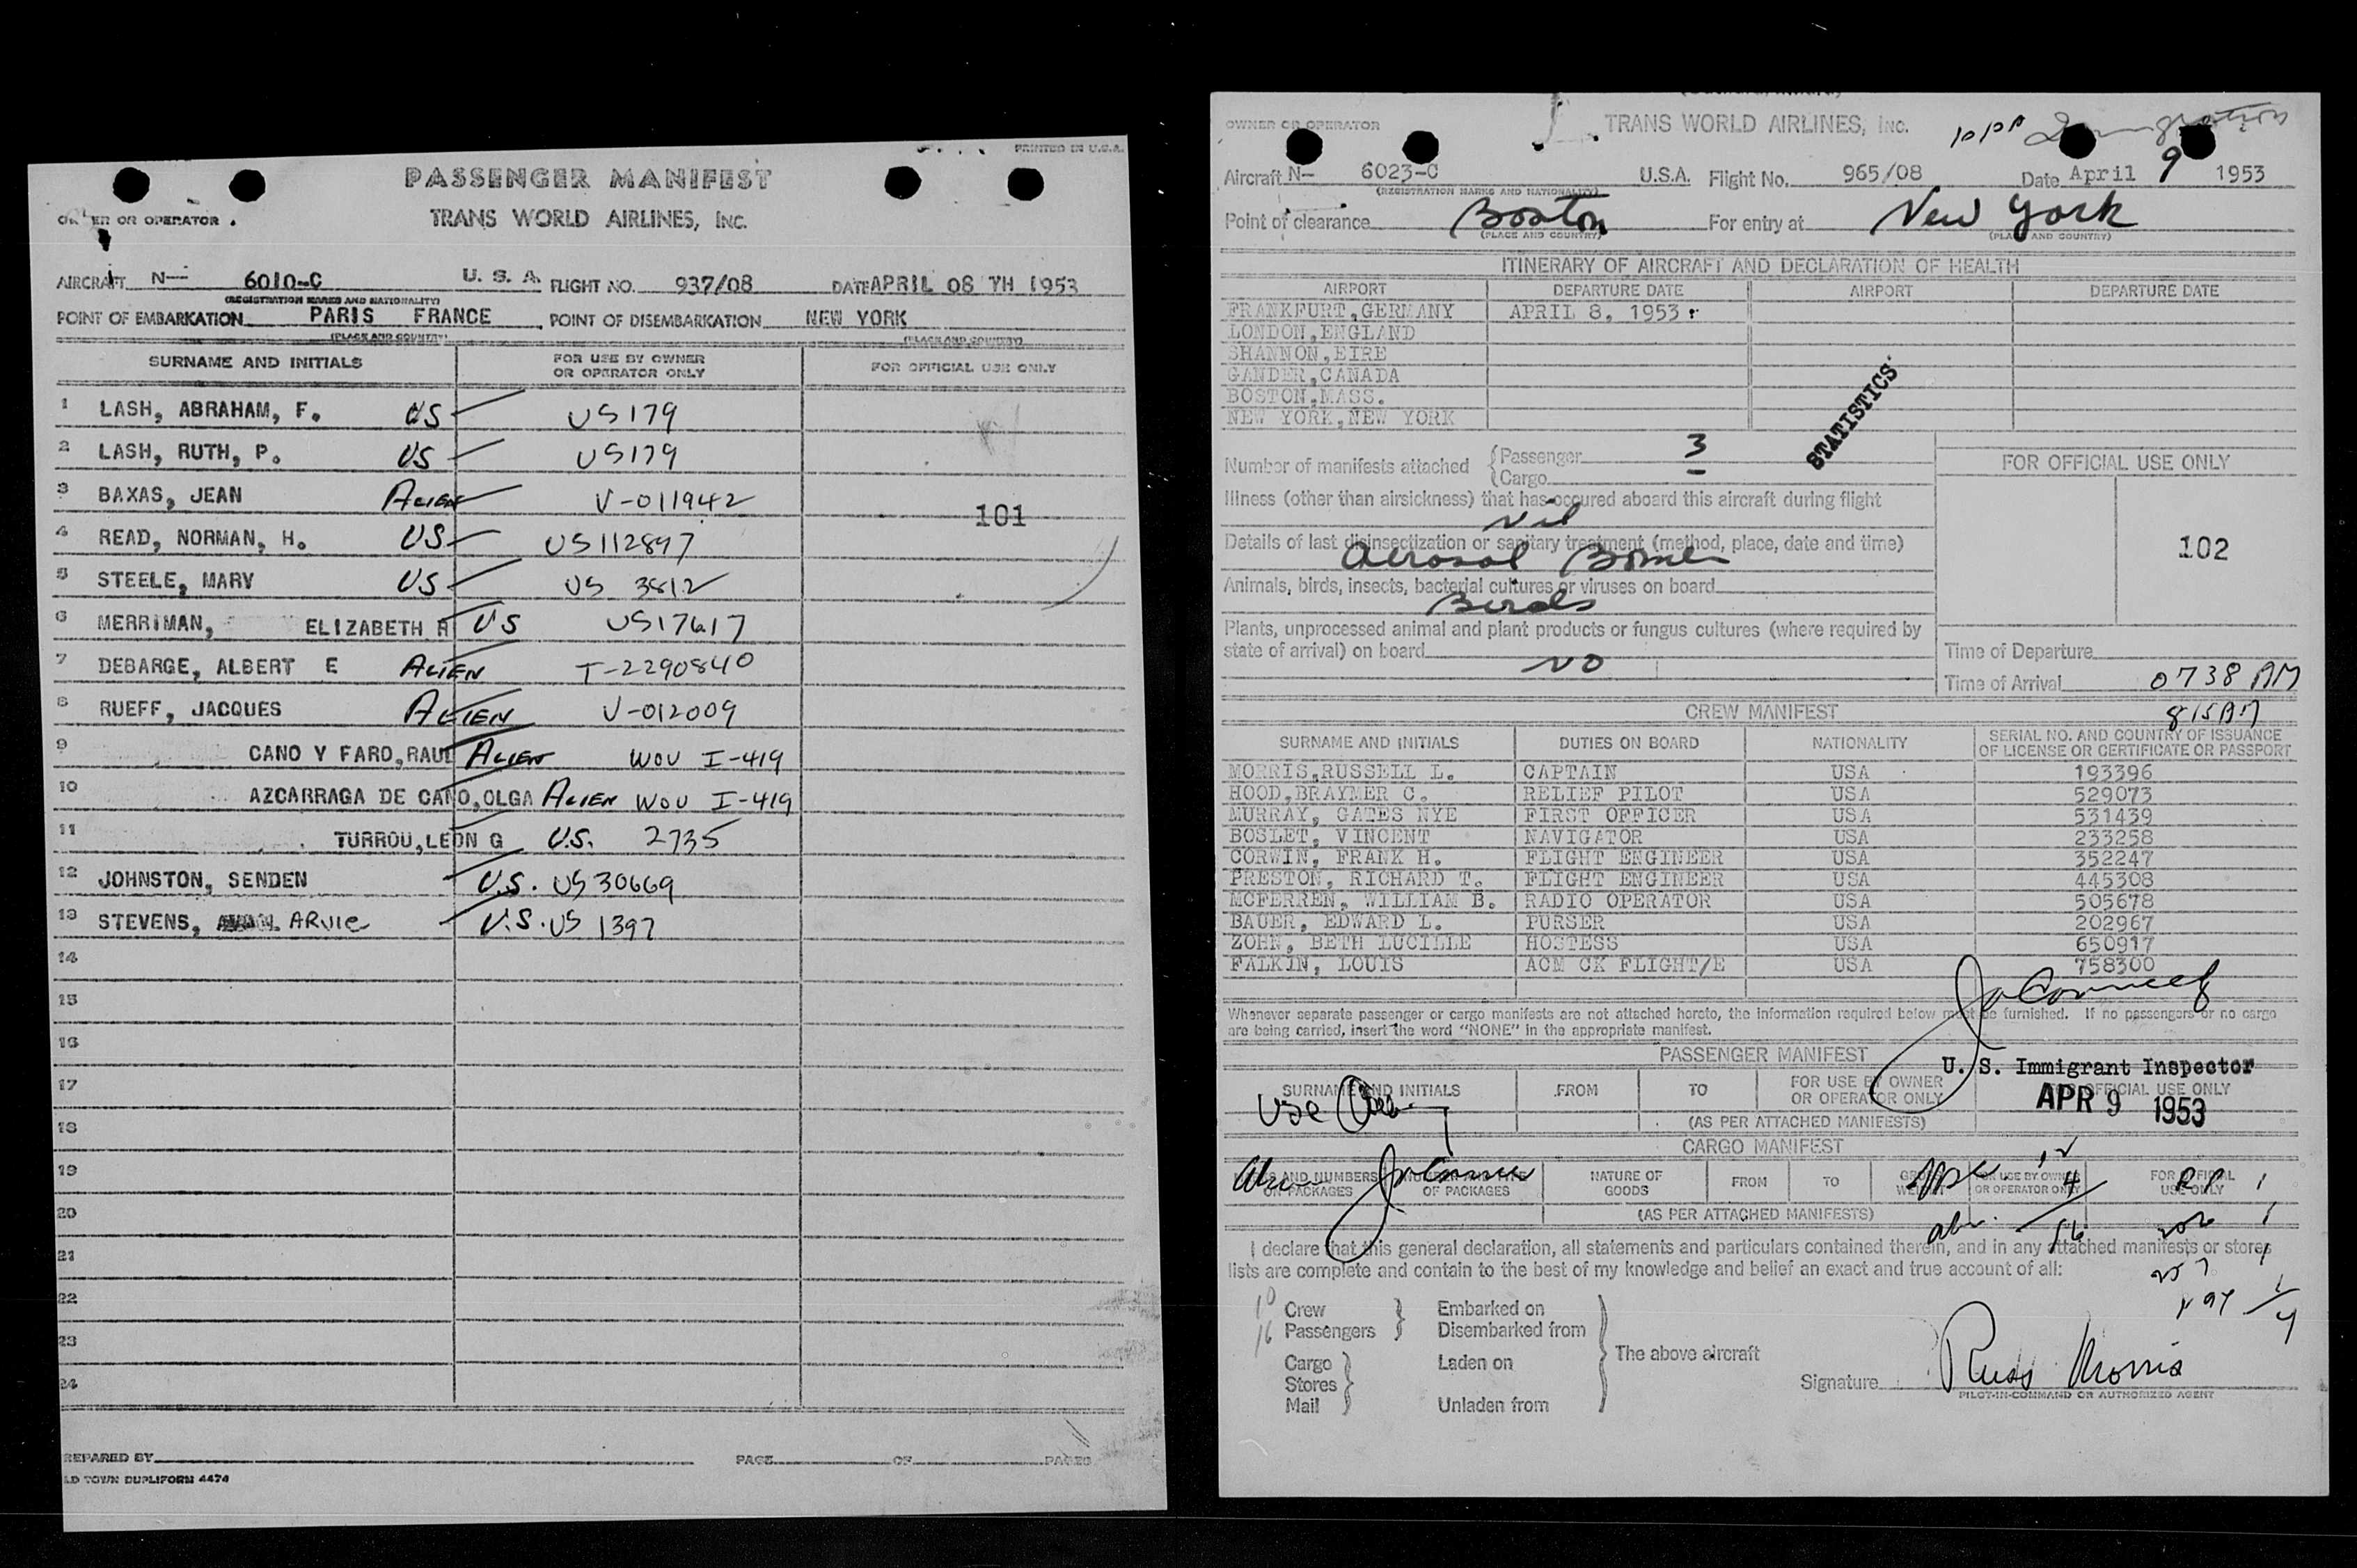 PRINTED IN U.S.A.
PASSENGER MANIFEST
OWNER OR OPERATOR
TRANS WORLD AIRLINES, INC.
AIRCRAFT N— 6010-C U. S. A. FLIGHT NO. 937/08 DATE APRIL 08 TH 1953
(REGISTRATION MARKS AND NATIONALITY)
POINT OF EMBARKATION PARIS FRANCE POINT OF DISEMBARKATION NEW YORK
(PLACE AND COUNTRY) (PLACE AND COUNTRY)
SURNAME AND INITIALS FOR USE BY OWNER OR OPERATOR ONLY FOR OFFICIAL USE ONLY
1 LASH, ABRAHAM, F. US US 179
2 LASH, RUTH, P. US US 179
3 BAXAS, JEAN ALIEN V-011942
101
4 READ, NORMAN, H. US US 112897
5 STEELE, MARV US US 3812
6 MERRIMAN, ELIZABETH R US US 17617
7 DEBARGE, ALBERT E ALIEN T-2290840
8 RUEFF, JACQUES ALIEN V-012009
9 CANO Y FARO,RAUL ALIEN WOV I-419
10 AZCARRAGA DE CANO,OLGA ALIEN WOV I-419
11 TURROU,LEON G U.S. 2735
12 JOHNSTON, SENDEN U.S. US 30669
13 STEVENS, ARVIE U.S. US 1397
14
15
16
17
18
19
20
21
22
23
24
PREPARED BY PAGE OF PAGES
OLD TOWN DUPLIFORM 4474
OWNER OR OPERATOR TRANS WORLD AIRLINES, INC. Immigration
Aircraft N- 6023-C U.S.A. Flight No. 965/08 Date April 9 1953
(REGISTRATION MARKS AND NATIONALITY)
Point of clearance Boston For entry at New York
(PLACE AND COUNTRY) (PLACE AND COUNTRY)
ITINERARY OF AIRCRAFT AND DECLARATION OF HEALTH
AIRPORT DEPARTURE DATE AIRPORT DEPARTURE DATE
FRANKFURT,GERMANY APRIL 8, 1953.
LONDON,ENGLAND
SHANNON,EIRE
GANDER,CANADA
BOSTON,MASS.
NEW YORK,NEW YORK
STATISTICS.
Number of manifests attached Passenger 3
Cargo —
FOR OFFICIAL USE ONLY
Illness (other than airsickness) that has occured aboard this aircraft during flight
Nil
Details of last disinsectization or sanitary treatment (method, place, date and time)
Aerosol Bomb
102
Animals, birds, insects, bacterial cultures or viruses on board
Birds
Plants, unprocessed animal and plant products or fungus cultures (where required by
state of arrival) on board NO
Time of Departure
Time of Arrival 0738 AM
815 AM
CREW MANIFEST
SURNAME AND INITIALS DUTIES ON BOARD NATIONALITY SERIAL NO. AND COUNTRY OF ISSUANCE OF LICENSE OR CERTIFICATE OR PASSPORT
MORRIS,RUSSELL L. CAPTAIN USA 193396
HOOD,BRAYMER C. RELIEF PILOT USA 529073
MURRAY, GATES NYE FIRST OFFICER USA 531439
BOSLET, VINCENT NAVIGATOR USA 233258
CORWIN, FRANK H. FLIGHT ENGINEER USA 352247
PRESTON, RICHARD T. FLIGHT ENGINEER USA 445308
MCFERREN, WILLIAM B. RADIO OPERATOR USA 505678
BAUER, EDWARD L. PURSER USA 202967
ZOHN, BETH LUCILLE HOSTESS USA 650917
FALKIN, LOUIS ACM CK FLIGHT/E USA 758300
Whenever separate passenger or cargo manifests are not attached hereto, the information required below must be furnished. If no passengers or no cargo
are being carried, insert the word "NONE" in the appropriate manifest.
PASSENGER MANIFEST
U. S. Immigrant Inspector
SURNAME AND INITIALS FROM TO FOR USE BY OWNER OR OPERATOR ONLY FOR OFFICIAL USE ONLY
APR 9 1953
(AS PER ATTACHED MANIFESTS)
CARGO MANIFEST
MARKS AND NUMBERS ON PACKAGES NUMBER AND TYPE OF PACKAGES NATURE OF GOODS FROM TO GROSS WEIGHT FOR USE BY OWNER OR OPERATOR ONLY FOR OFFICIAL USE ONLY
(AS PER ATTACHED MANIFESTS)
I declare that this general declaration, all statements and particulars contained therein, and in any attached manifests or stores
lists are complete and contain to the best of my knowledge and belief an exact and true account of all:
10 Crew Embarked on
16 Passengers Disembarked from
The above aircraft
Cargo Laden on
Stores
Mail Unladen from
Signature Russ Morris
PILOT-IN-COMMAND OR AUTHORIZED AGENT